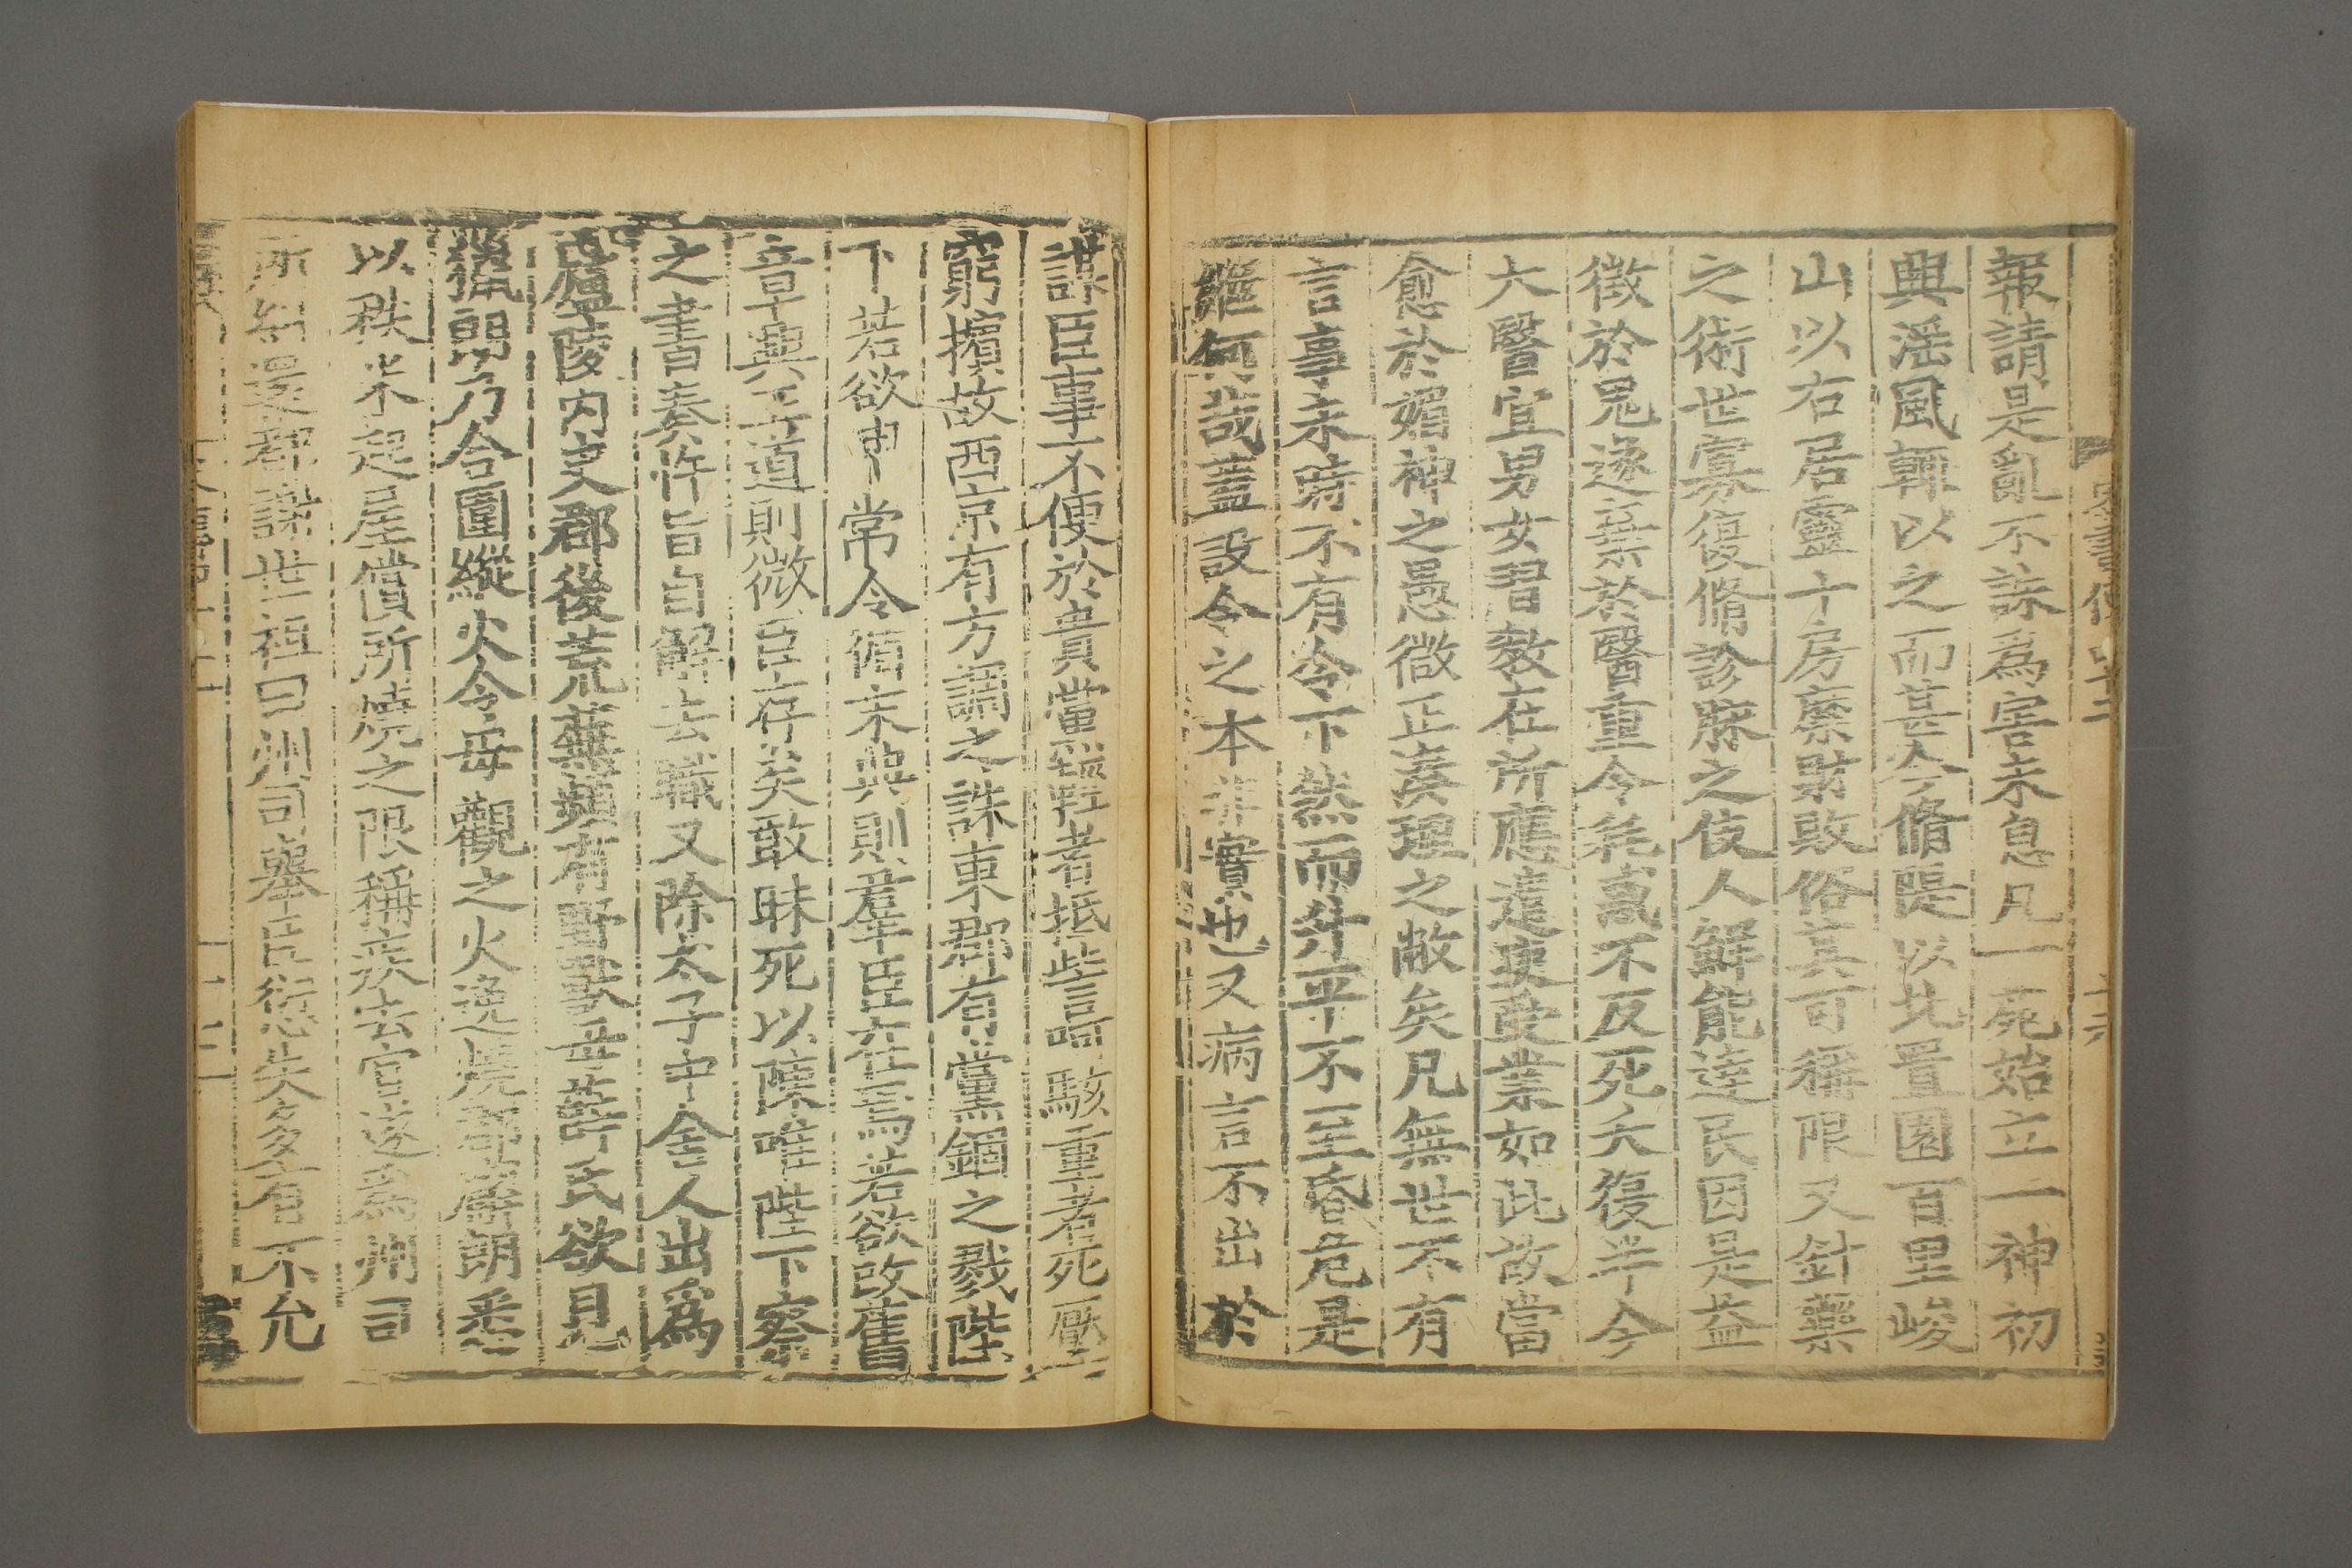 報請是亂不誅爲害未息凡一苑始立一神初
興淫風輒以之而甚今脩隄以北置園百里峻
山以右居靈十房糜財敗俗其可稱限又針藥
之術世寡復脩診脉之伎人鮮能達民因是益
徵於鬼遂棄於醫重令耗惑不反死夭復半今
太醫宜男女習敎在所應遣吏受業如此故當
愈於媚神之愚微正湊理之敝矣凡無世不有
言事未時不有令下然而升平不至昏危是
繼何哉蓋設令之本非實也又病言不出於
謀臣事不便於貴黨輕者抵訾呵駭重者死壓
窮擯故西京有方調之誅東郡有黨錮之戮陛
下若欲申常令循末典則羣臣在焉若欲改舊
章興王道則微臣存矣敢昧死以陳唯陛下察
之書奏忤旨自解去職又除太子中舍人出爲
廬陵內史郡後荒蕪頻有野獸母薛氏欲見
獵朗乃合圍縱火令母觀之火逸燒郡廨朗悉
以秩米起屋償所燒之限稱疾去官遂爲州司
所糾還都謝世祖曰州司舉臣愆失多有不允